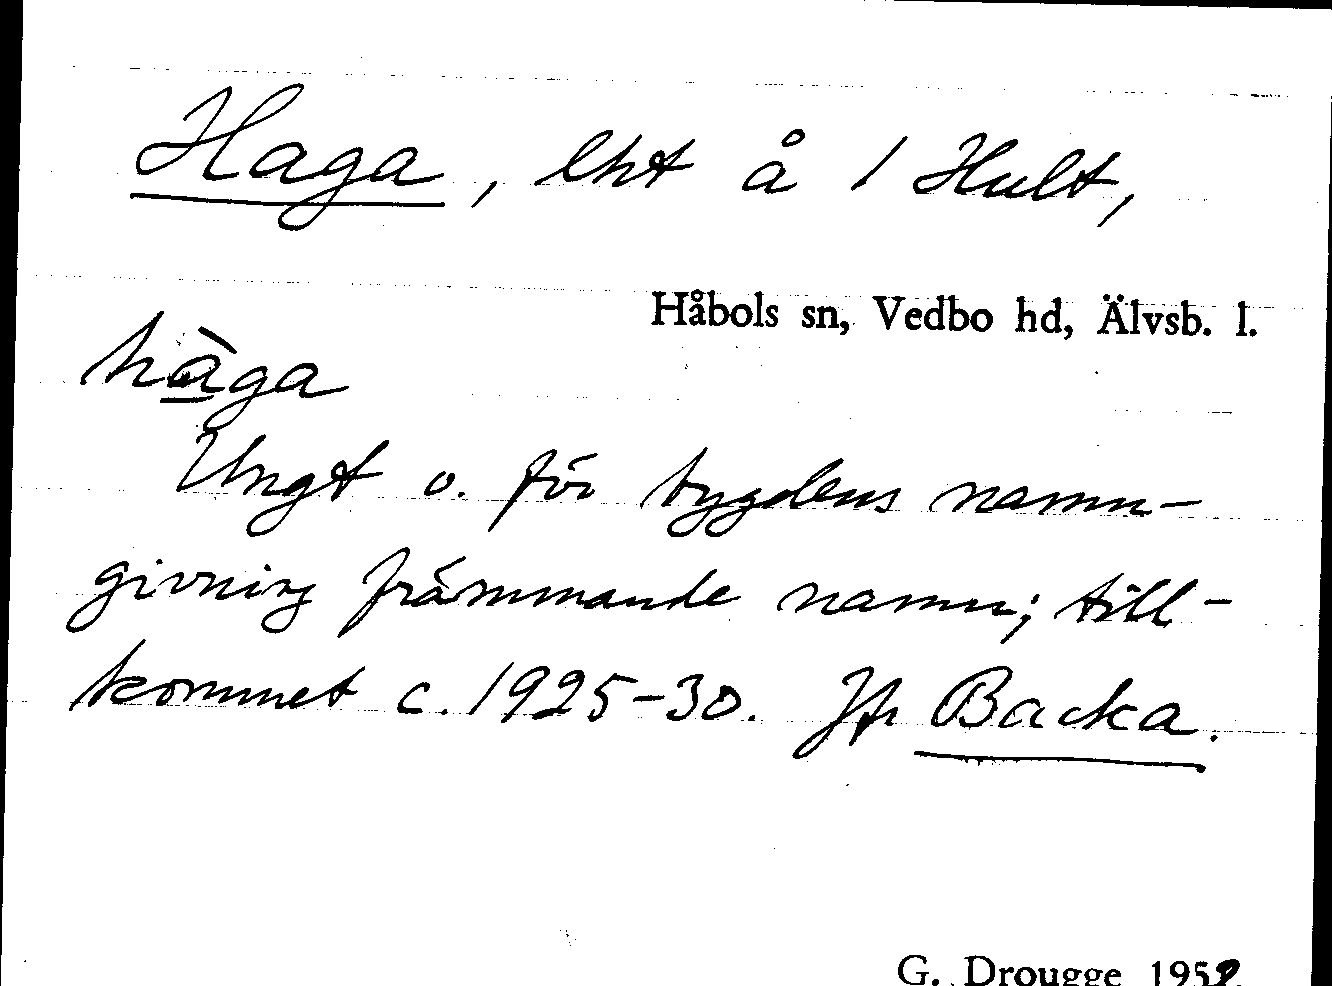 Haga, lht å 1 Hult,
Håbols sn, Vedbo hd, Älvsb. l.
hàga
Ungt o. för bygdens namn-
givning främmande namn; till-
kommet c. 1925-30. Jfr Backa.
G. Drougge 1952